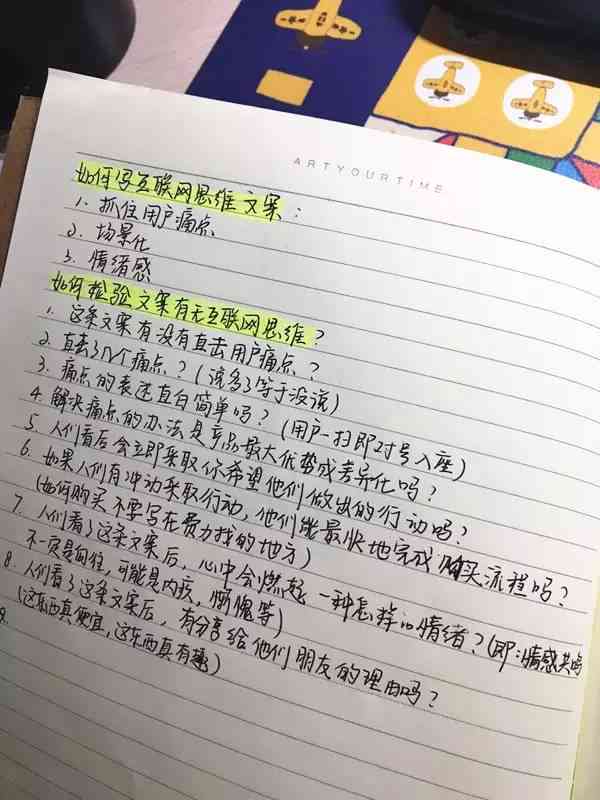 ARTYOURTIME
如何写互联网思维文案：
1. 抓住用户痛点
2. 场景化
3. 情绪感
如何检验文案有无互联网思维？
1. 这条文案有没有直击用户痛点？
2. 直击了几个痛点？（说多了等于没说）
3. 痛点的表述直白简单吗？（用户一扫即对号入座）
4. 解决痛点的办法是产品最大优势或差异化吗？
5. 人们看后会立即采取你希望他们做出的行动吗？
6. 如果人们有冲动采取行动，他们能最快地完成购买流程吗？
（如何购买不要写在费力找的地方）
7. 人们看了这条文案后，心中会燃起一种怎样的情绪？（即：情感共鸣
不一定是向往，可能是内疚，惭愧等）
8. 人们看了这条文案后，有分享给他们朋友的理由吗？
（这东西真便宜，这东西真有趣）
9.